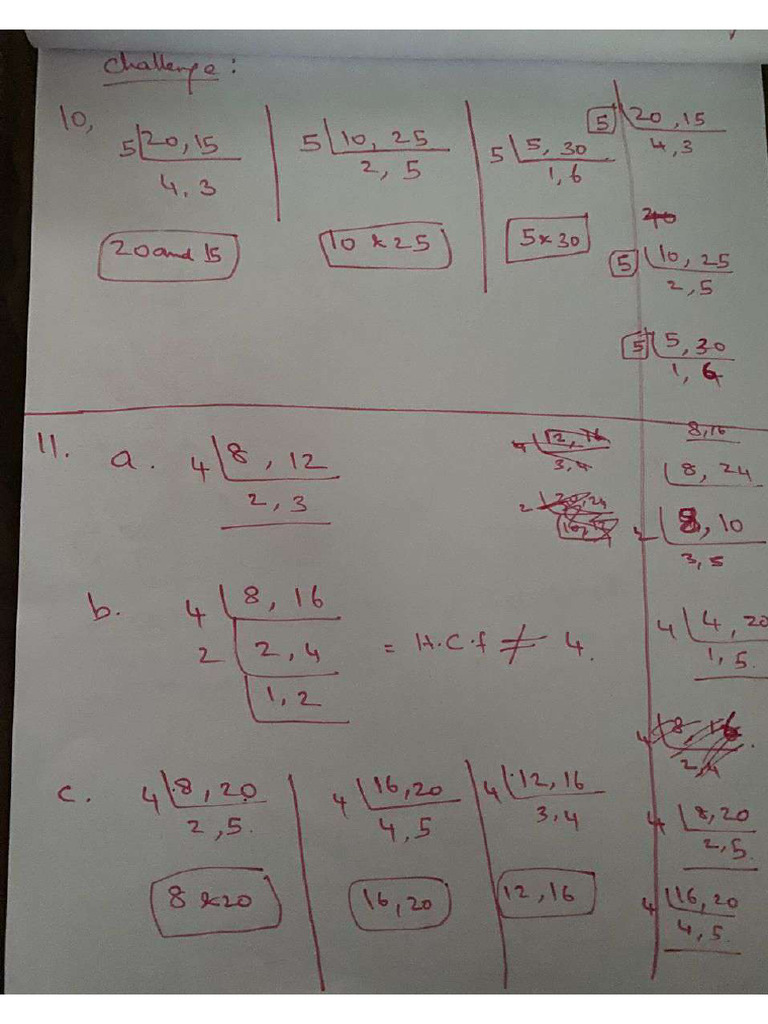 Challenge:
10,
5 20, 15
4, 3
20 and 15
5 10, 25
2, 5
10 & 25
5 5, 30
1, 6
5 & 30
5 20, 15
4, 3
5 10, 25
2, 5
5 5, 30
1, 6
11. a. 4 8, 12
2, 3
b. 4 8, 16
2 2, 4 = H.C.f ≠ 4.
1, 2
c. 4 8, 20
2, 5.
8 & 20
4 16, 20
4, 5
16, 20
4 12, 16
3, 4
12, 16
12, 16
3, 4
8, 16
8, 24
8, 10
3, 5
4 4, 20
1, 5.
4 8, 16
2, 4
4 8, 20
2, 5.
4 16, 20
4, 5.